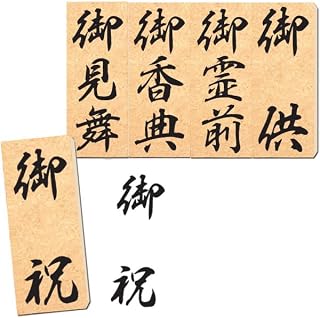 御供
御霊前
御香典
御見舞
御祝
御祝